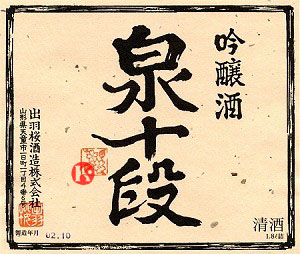 吟醸酒
泉十段
出羽桜酒造株式会社
山形県天童市一日町一丁目4番6号
製造年月 02.10
K
清酒
1.8ℓ詰